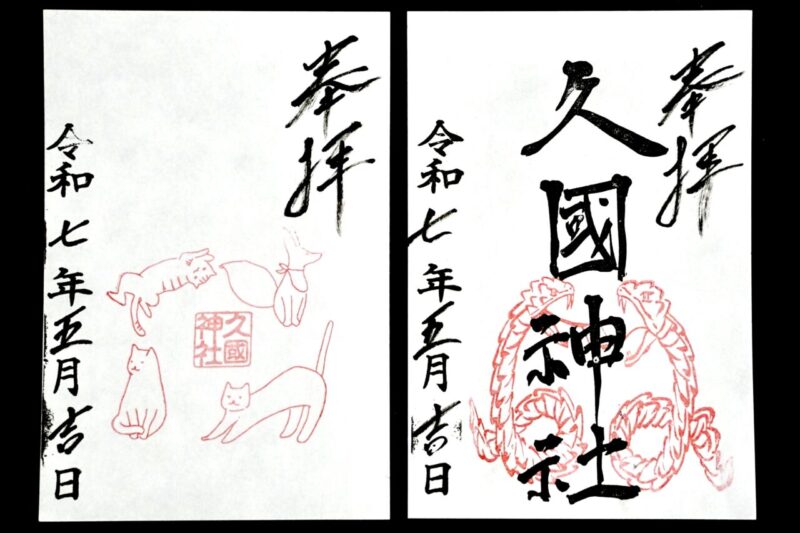 奉拝
久國
神社
令和七年五月吉日
奉拝
久國神社
令和七年五月吉日